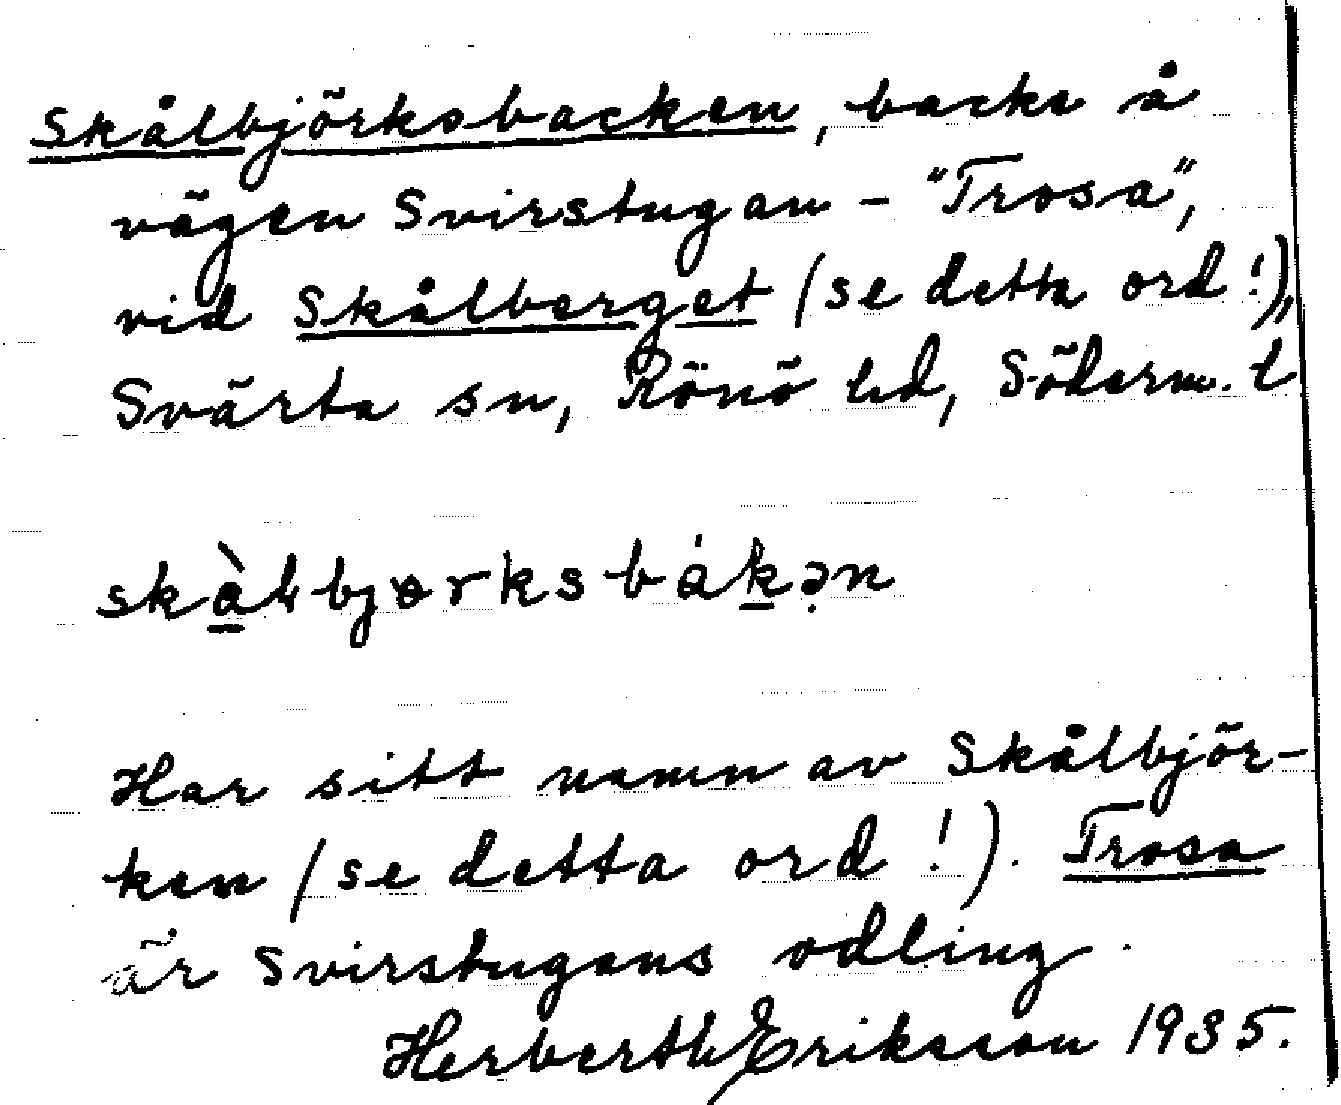 Skålbjörksbacken, backe å
vägen Svirstugan – "Trosa",
vid Skålberget (se detta ord!),
Svärta sn, Rönö hd, Söderm. l
skà̱lbjørksbáḵə̣n
Har sitt namn av Skålbjör-
ken (se detta ord!). Trosa
är Svirstugans odling.
Herberth Eriksson 1935.